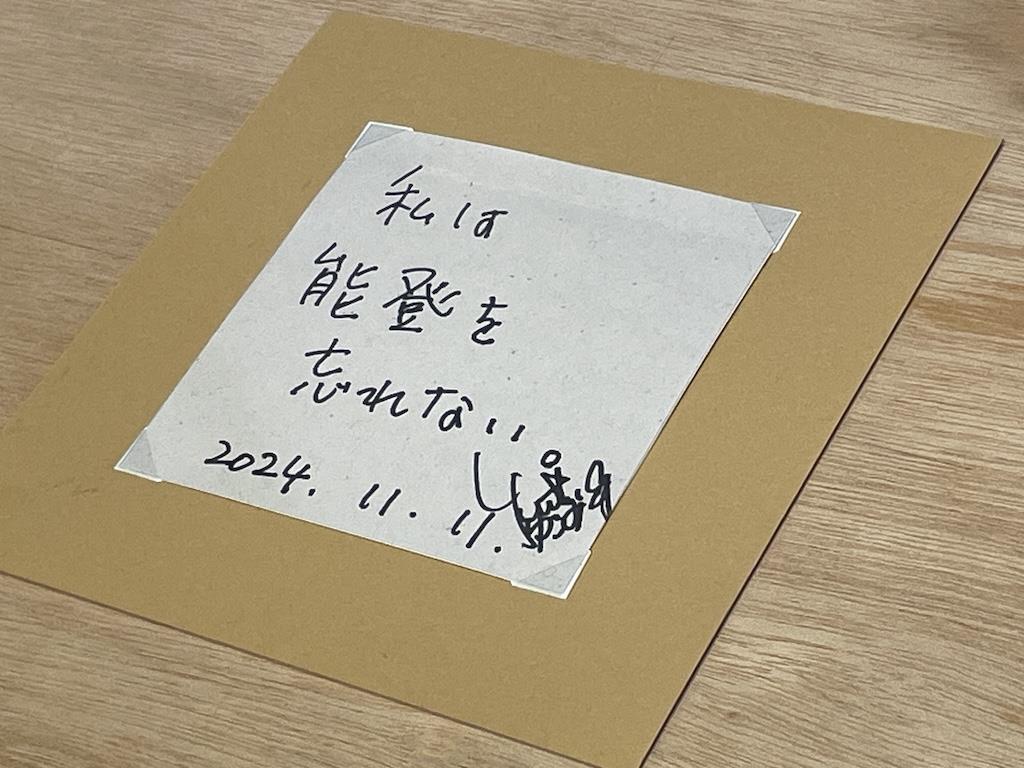 私は
能登を
忘れない
2024. 11. 11.